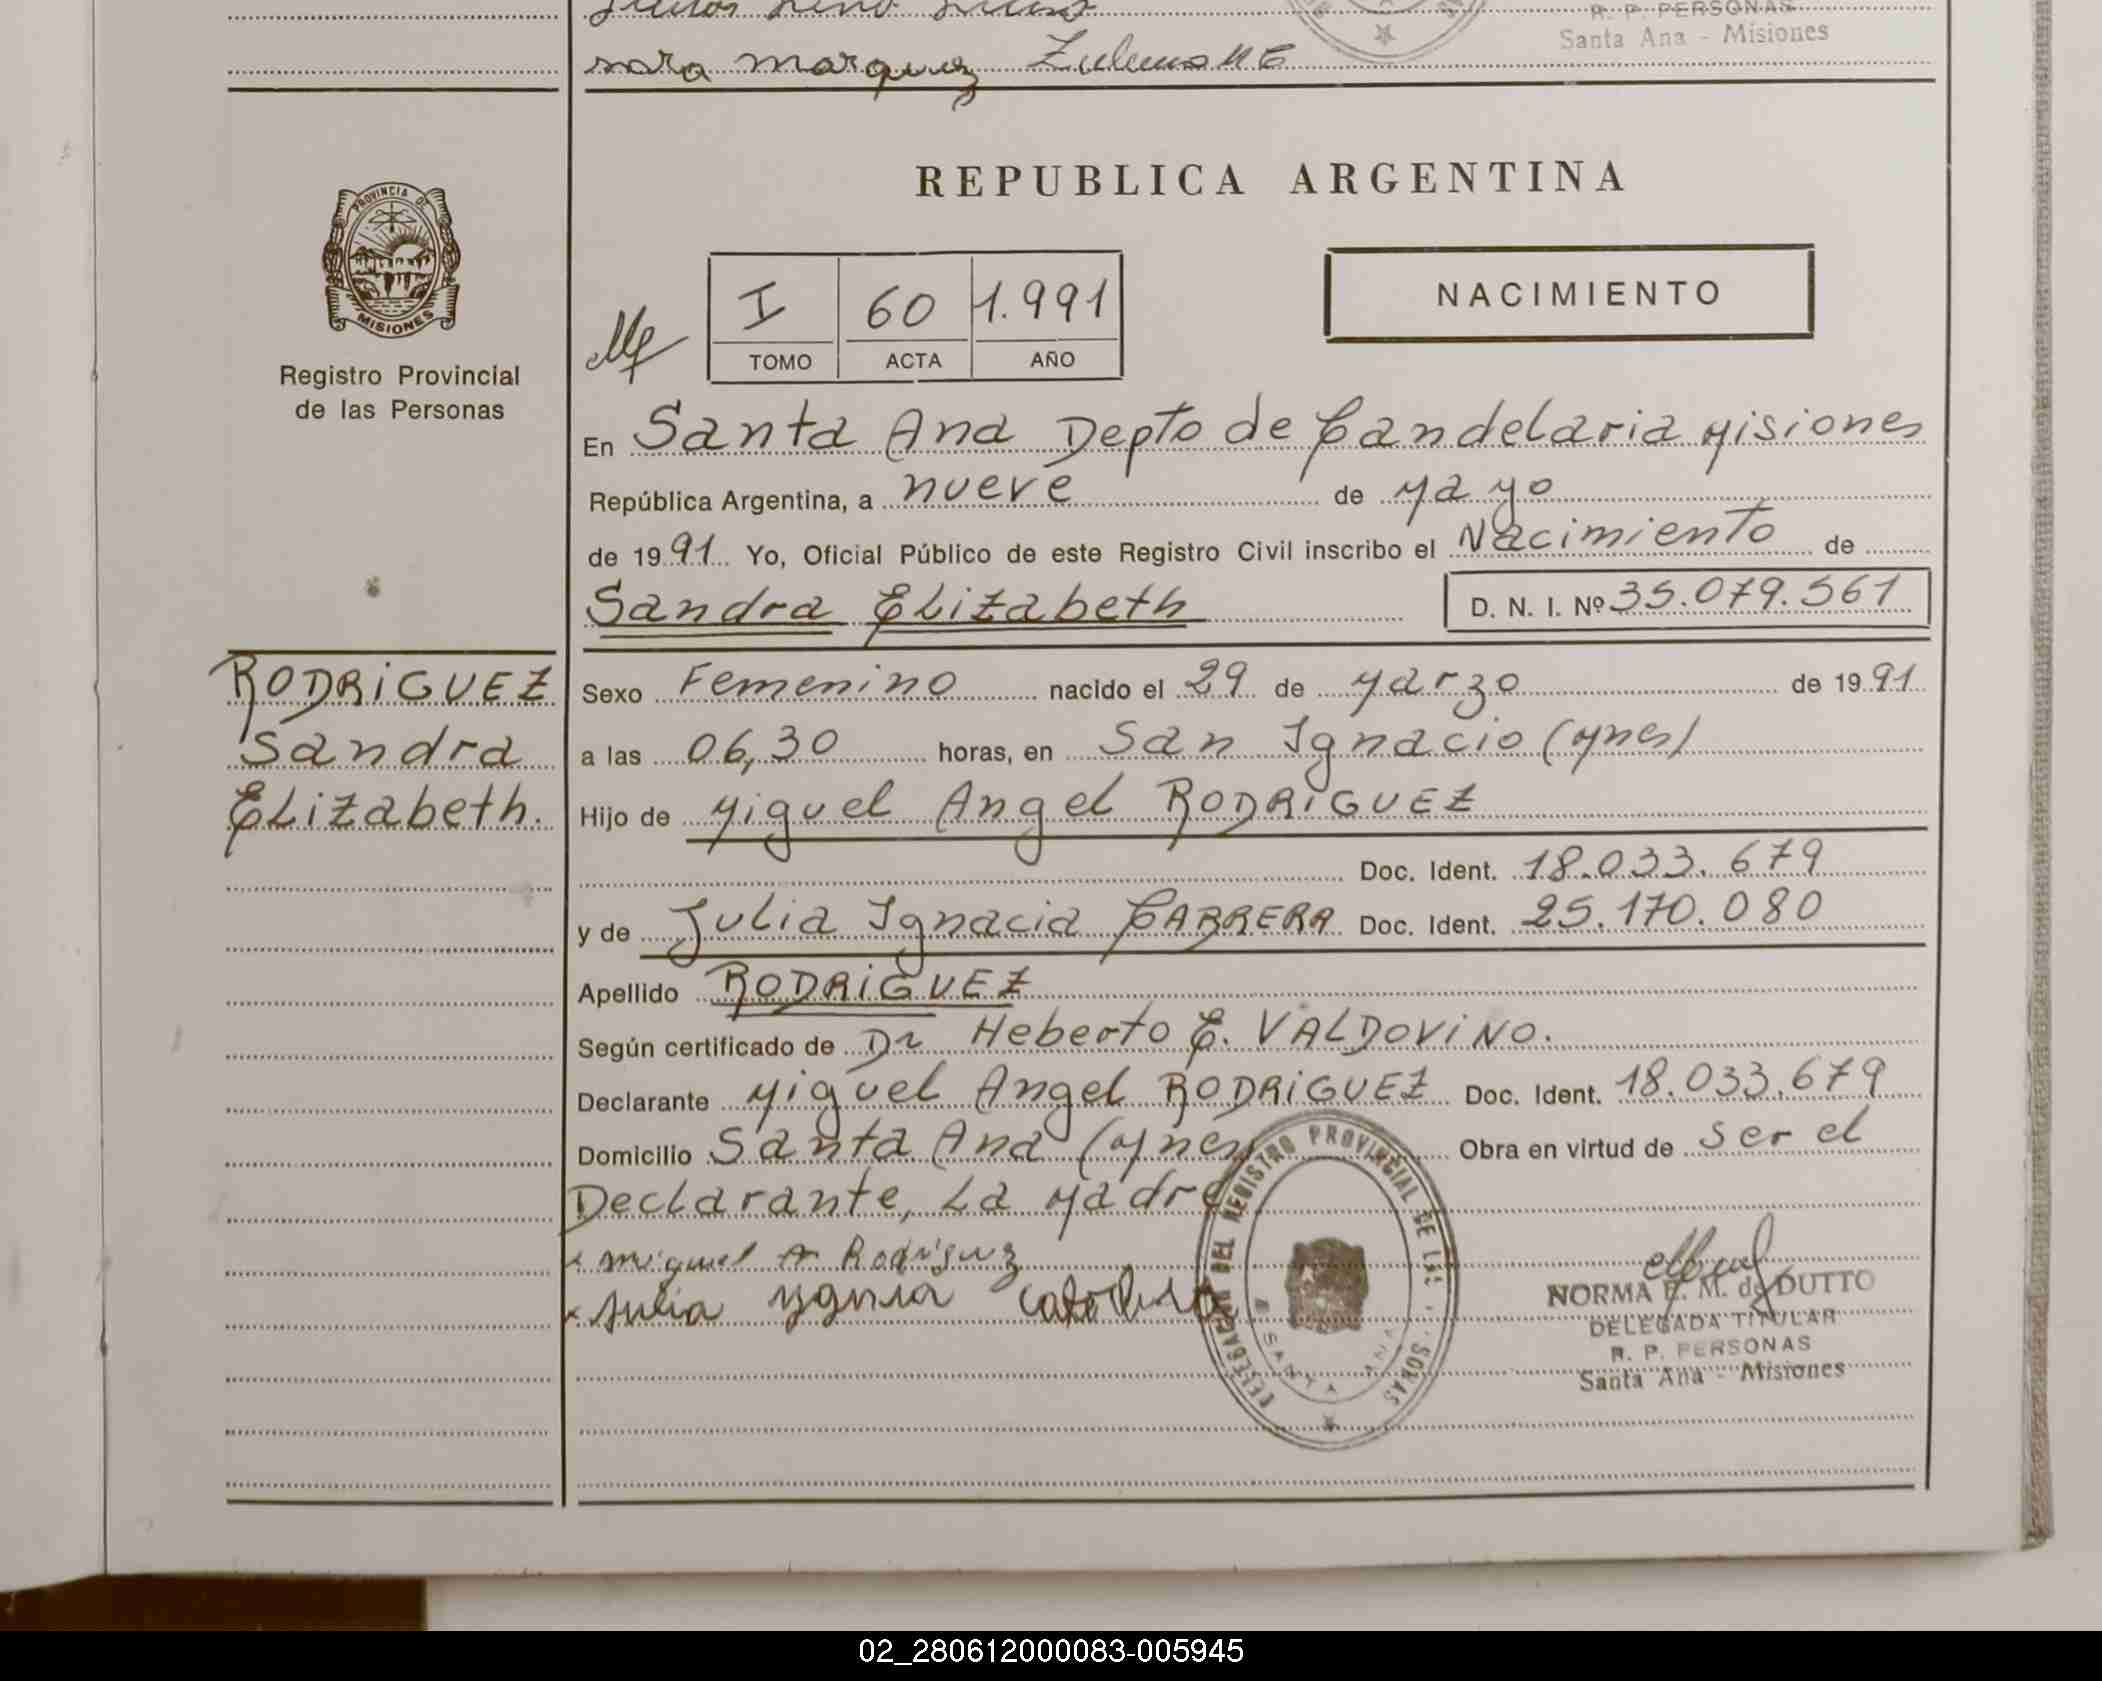 R. P. PERSONAS
Santa Ana - Misiones
sara marquez
PROVINCIA DE
MISIONES
Registro Provincial
de las Personas
REPUBLICA ARGENTINA
I 60 1.991
TOMO ACTA AÑO
NACIMIENTO
En Santa Ana Depto de Candelaria Misiones
República Argentina, a nueve de Mayo
de 1991 Yo, Oficial Público de este Registro Civil inscribo el Nacimiento de
Sandra Elizabeth D. N. I. Nº 35.079.561
RODRiGUEZ
Sandra
Elizabeth.
Sexo Femenino nacido el 29 de Marzo de 1991
a las 06,30 horas, en San Ignacio (Mnes)
Hijo de Miguel Angel RODRiGUEZ
Doc. Ident. 18.033.679
y de Julia Ignacia CABRERA Doc. Ident. 25.170.080
Apellido RODRiGUEZ
Según certificado de Dr Heberto E. VALDOViNO.
Declarante Miguel Angel RODRiGUEZ Doc. Ident. 18.033.679
Domicilio Santa Ana (Mnes) Obra en virtud de ser el
Declarante, La Madre
x miguel A Rodriguz
x Julia
DELEGACION DEL REGISTRO PROVINCIAL DE LAS PERSONAS
SANTA ANA
NORMA E. M. de DUTTO
DELEGADA TITULAR
R. P. PERSONAS
Santa Ana - Misiones
02_280612000083-005945